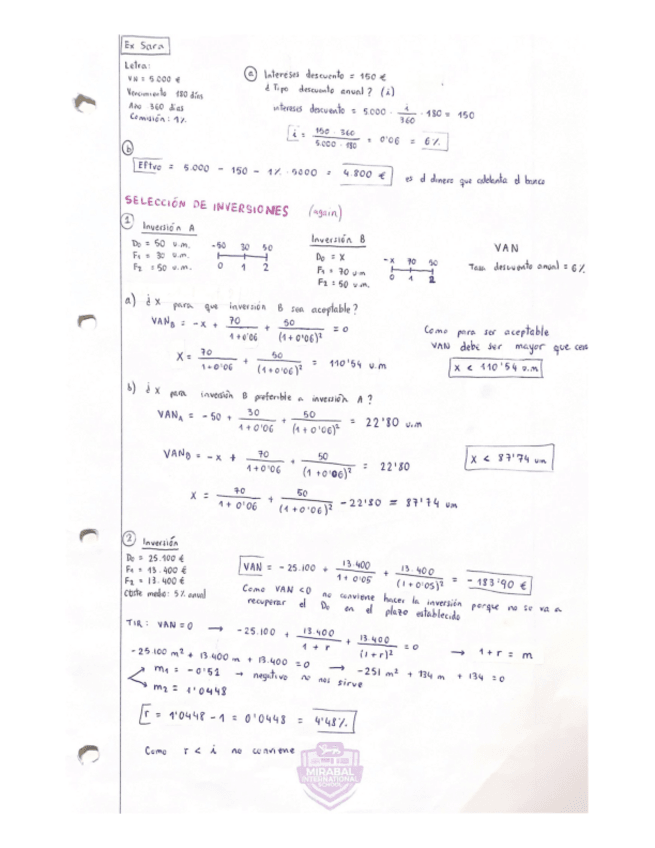 Ex Sara
Letra:
VN = 5.000 €
Vencimiento 180 días
Año 360 días
Comisión: 1%
a) Intereses descuento = 150 €
¿ Tipo descuento anual? (i)
intereses descuento = 5.000 · i/360 · 180 = 150
i = 150 · 360 / 5.000 · 180 = 0'06 = 6%
b)
Eftvo = 5.000 - 150 - 1% · 5000 = 4.800 € es el dinero que adelanta el banco
SELECCIÓN DE INVERSIONES (again)
1 Inversión A
D0 = 50 u.m.
F1 = 30 u.m.
F2 = 50 u.m.
-50 30 50
0 1 2
Inversión B
D0 = X
F1 = 70 um
F2 = 50 u.m.
-x 70 50
0 1 2
VAN
Tasa descuento anual = 6%
a) ¿x para que inversión B sea aceptable?
VAN_B = -x + 70/(1+0'06) + 50/(1+0'06)² = 0
X = 70/(1+0'06) + 50/(1+0'06)² = 110'54 u.m
Como para ser aceptable
VAN debe ser mayor que cero
x < 110'54 u.m
b) ¿x para inversión B preferible a inversión A?
VAN_A = -50 + 30/(1+0'06) + 50/(1+0'06)² = 22'80 u.m
VAN_B = -x + 70/(1+0'06) + 50/(1+0'06)² = 22'80
x < 87'74 um
X = 70/(1+0'06) + 50/(1+0'06)² - 22'80 = 87'74 um
2 Inversión
D0 = 25.100 €
F1 = 13.400 €
F2 = 13.400 €
Coste medio: 5% anual
VAN = -25.100 + 13.400/(1+0'05) + 13.400/(1+0'05)² = -183'90 €
Como VAN <0 no conviene hacer la inversión porque no se va a
recuperar el D0 en el plazo establecido
TIR: VAN=0 → -25.100 + 13.400/(1+r) + 13.400/(1+r)² = 0 → 1+r = m
-25.100 m² + 13.400 m + 13.400 = 0 → -251 m² + 134 m + 134 = 0
m1 = -0'51 → negativo no nos sirve
m2 = 1'0448
r = 1'0448 - 1 = 0'0448 = 4'48%
Como r < i no conviene
MIRABAL
INTERNATIONAL
SCHOOL